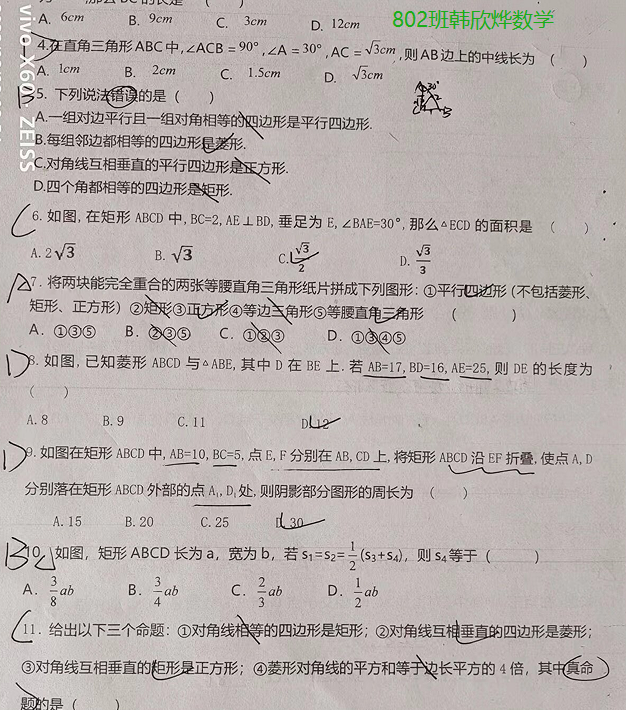 A. 6cm B. 9cm C. 3cm D. 12cm
802班韩欣烨数学
4.在直角三角形ABC中,∠ACB = 90°,∠A = 30°, AC = √3cm,则AB边上的中线长为 ( )
A. 1cm B. 2cm C. 1.5cm D. √3cm
B 5. 下列说法错误的是 ( )
A.一组对边平行且一组对角相等的四边形是平行四边形.
B.每组邻边都相等的四边形是菱形.
C.对角线互相垂直的平行四边形是正方形.
D.四个角都相等的四边形是矩形.
C 6. 如图, 在矩形 ABCD 中, BC=2, AE⊥BD, 垂足为 E, ∠BAE=30°, 那么△ECD 的面积是 ( )
A. 2√3 B. √3 C. √3/2 D. √3/3
A 7. 将两块能完全重合的两张等腰直角三角形纸片拼成下列图形: ①平行四边形 (不包括菱形、
矩形、正方形) ②矩形③正方形④等边三角形⑤等腰直角三角形 ( )
A. ①③⑤ B. ②③⑤ C. ①②③ D. ①③④⑤
D 8. 如图, 已知菱形 ABCD 与△ABE, 其中 D 在 BE 上. 若 AB=17, BD=16, AE=25, 则 DE 的长度为
( )
A. 8 B. 9 C. 11 D. 12
D 9. 如图在矩形 ABCD 中, AB=10, BC=5, 点 E, F 分别在 AB, CD 上, 将矩形 ABCD 沿 EF 折叠, 使点 A, D
分别落在矩形 ABCD 外部的点 A₁, D₁ 处, 则阴影部分图形的周长为 ( )
A. 15 B. 20 C. 25 D. 30
B 10. 如图, 矩形 ABCD 长为 a, 宽为 b, 若 s₁=s₂=1/2(s₃+s₄), 则 s₄ 等于 ( )
A. 3/8 ab B. 3/4 ab C. 2/3 ab D. 1/2 ab
C 11. 给出以下三个命题: ①对角线相等的四边形是矩形; ②对角线互相垂直的四边形是菱形;
③对角线互相垂直的矩形是正方形; ④菱形对角线的平方和等于边长平方的 4 倍, 其中真命
题的是 ( )
vivo X60 ZEISS